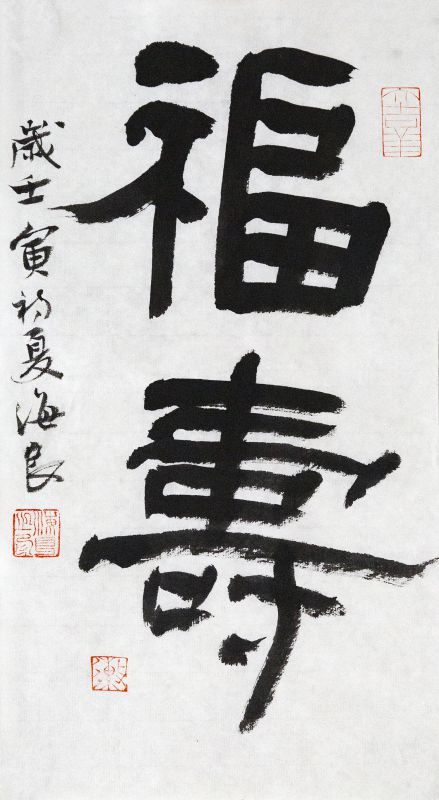 福壽
歲壬寅初夏海良